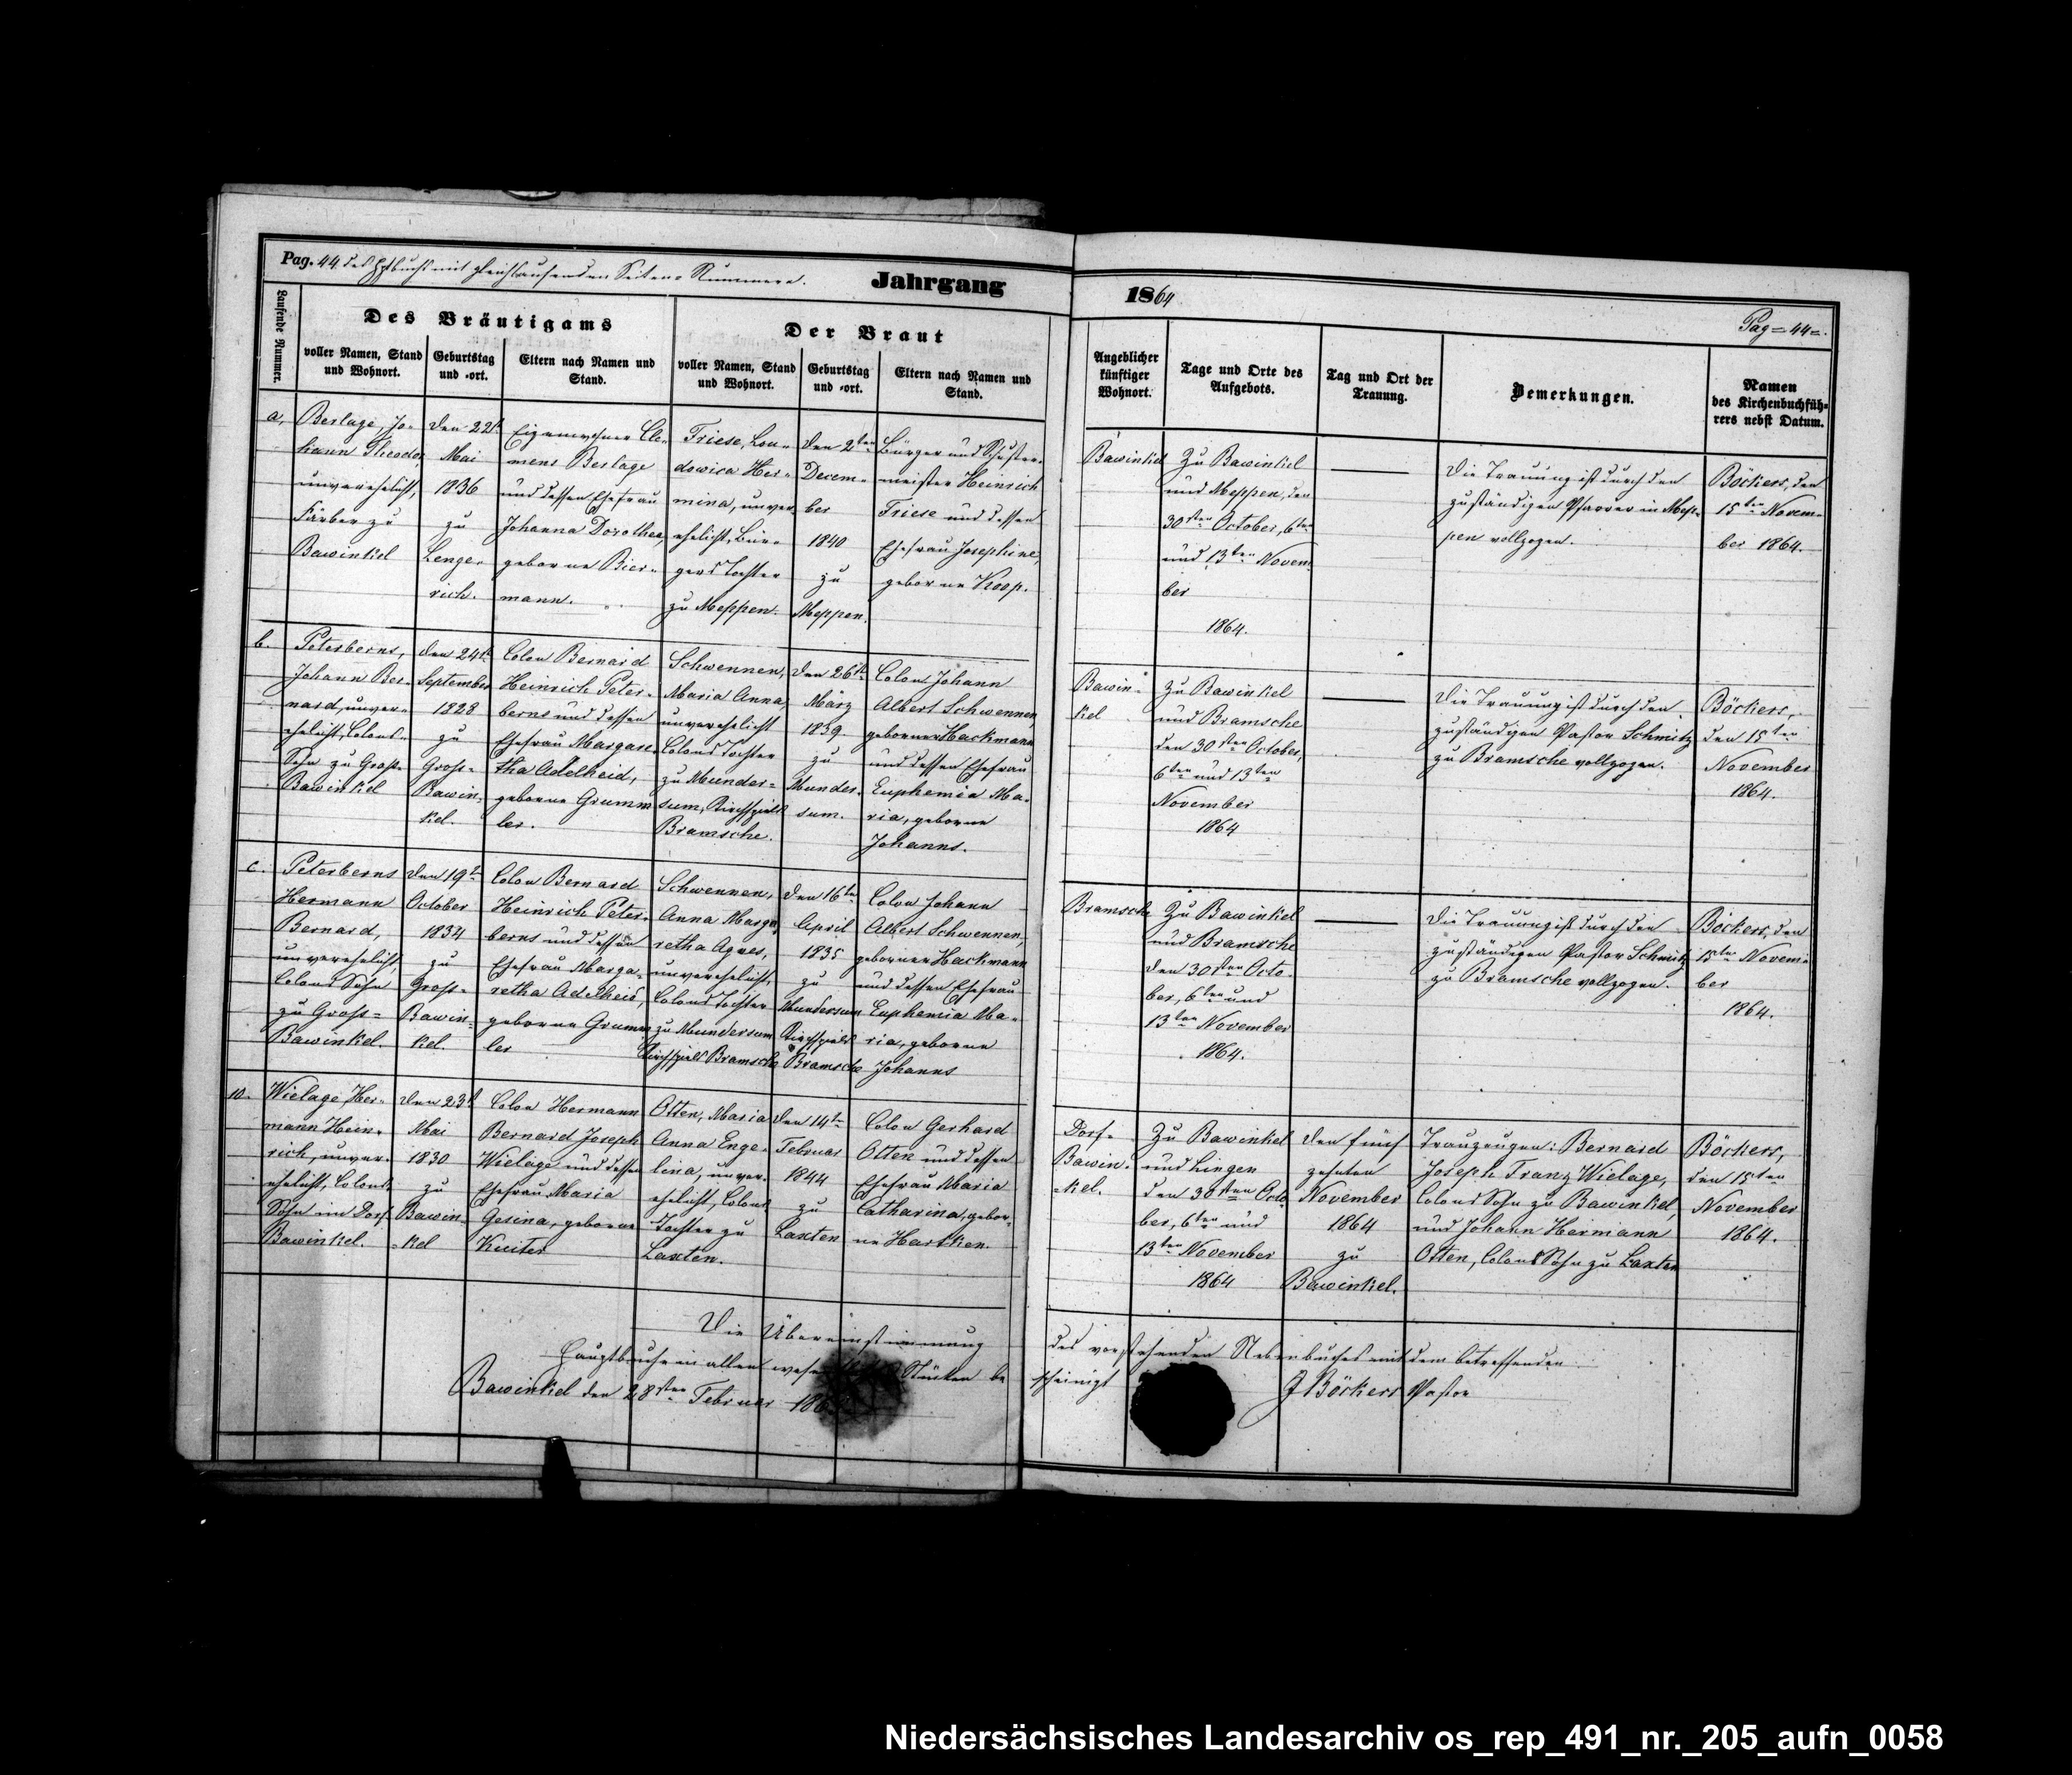 Pag. 44 des Hptbuchs mit gleichlaufenden Seiten-Nummern.
Jahrgang
1864
Pag = 44 =.
Laufende Nummer.
Des Bräutigams
voller Namen, Stand
und Wohnort.
Geburtstag
und -ort.
Eltern nach Namen und
Stand.
Der Braut
voller Namen, Stand
und Wohnort.
Geburtstag
und -ort.
Eltern nach Namen und
Stand.
Angeblicher
künftiger
Wohnort.
Tage und Orte des
Aufgebots.
Tag und Ort der
Trauung.
Bemerkungen.
Namen
des Kirchenbuchfüh-
rers nebst Datum.
a,
Berlage, Jo-
hann Theodor,
unverehelicht,
Färber zu
Bawinkel
den 22t
Mai
1836
zu
Lenge-
rich.
Eigenwohner Cle-
mens Berlage
und dessen Ehefrau
Johanna Dorothea,
geborne Bier-
mann.
Friese, Lou-
dowica Her-
mina, unver-
ehelicht, Bür-
gers Tochter
zu Meppen.
den 2ten
Decem-
ber
1840
zu
Meppen.
Bürger und Schuster-
meister Heinrich
Friese und dessen
Ehefrau Josephine,
geborne Koop.
Bawinkel
Zu Bawinkel
und Meppen, den
30sten October, 6ten
und 13ten Novem-
ber
1864.
Die Trauung ist durch den
zuständigen Pfarrer in Mep-
pen vollzogen.
Böckers, den
15ten Novem-
ber 1864.
b.
Peterberns,
Johann Ber-
nard, unver-
ehelicht, Colons-
Sohn zu Groß-
Bawinkel
den 24st
September
1828
zu
Groß-
Bawin-
kel.
Colon Bernard
Heinrich Peter-
berns und dessen
Ehefrau Margare-
tha Adelheid,
geborne Grumm-
ler.
Schwennen,
Maria Anna,
unverehelicht
Colons Tochter
zu Munder-
sum, Kirchspiels
Bramsche.
den 26st
März
1839.
zu
Munder-
sum.
Colon Johann
Albert Schwennen
geborner Hackmann
und dessen Ehefrau
Euphemia Ma-
ria, geborne
Johanns.
Bawin-
kel
Zu Bawinkel
und Bramsche
den 30sten October,
6ten und 13ten
November
1864
Die Trauung ist durch den
zuständigen Pastor Schmitz
zu Bramsche vollzogen.
Böckers,
den 15ten
November
1864.
c.
Peterberns
Hermann
Bernard,
unverehelicht,
Colons Sohn
zu Groß-
Bawinkel.
den 19t
October
1834
zu
Groß-
Bawin-
kel.
Colon Bernard
Heinrich Peter-
berns und dessen
Ehefrau Marga-
retha Adelheid,
geborne Grumm-
ler
Schwennen,
Anna Marga-
retha Agnes,
unverehelicht,
Colons Tochter
zu Mundersum
Kirchspiels Bramsche
den 16ten
April
1835
zu
Mundersum
Kirchspiels
Bramsche
Colon Johann
Albert Schwennen,
geborner Hackmann
und dessen Ehefrau
Euphemia Ma-
ria, geborne
Johanns
Bramsche
Zu Bawinkel
und Bramsche
den 30sten Octo-
ber, 6ten und
13ten November
1864.
Die Trauung ist durch den
zuständigen Pastor Schmitz
zu Bramsche vollzogen.
Böckers, den
15ten Novem-
ber
1864.
10.
Wielage, Her-
mann Hein-
rich, unver-
ehelicht, Colons-
Sohn im Dorf
Bawinkel.
den 23t
Mai
1830
zu
Bawin-
-kel
Colon Hermann
Bernard Joseph
Wielage und dessen
Ehefrau Maria
Gesina, geborne
Kuiter
Otten, Maria
Anna Enge-
lina, unver-
ehelicht, Colons
Tochter zu
Laxten.
den 14ten
Februar
1844
zu
Laxten
Colon Gerhard
Otten und dessen
Ehefrau Maria
Catharina, gebor-
ne Hartken.
Dorf-
Bawin-
-kel.
Zu Bawinkel
und Lingen
den 30sten Octo-
ber, 6ten und
13ten November
1864
den fünf
zehnten
November
1864
zu
Bawinkel.
Trauzeugen: Bernard
Joseph Franz Wielage,
Colons Sohn zu Bawinkel,
und Johann Hermann
Otten, Colons Sohn zu Laxten
Böckers,
den 15ten
November
1864.
Die Übereinstimmung des vorstehenden Nebenbuches mit dem betreffenden
Hauptbuche in allen Stücken bescheinigt
Bawinkel den 28sten Februar J Böckers Pastor
Niedersächsisches Landesarchiv os_rep_491_nr._205_aufn_0058